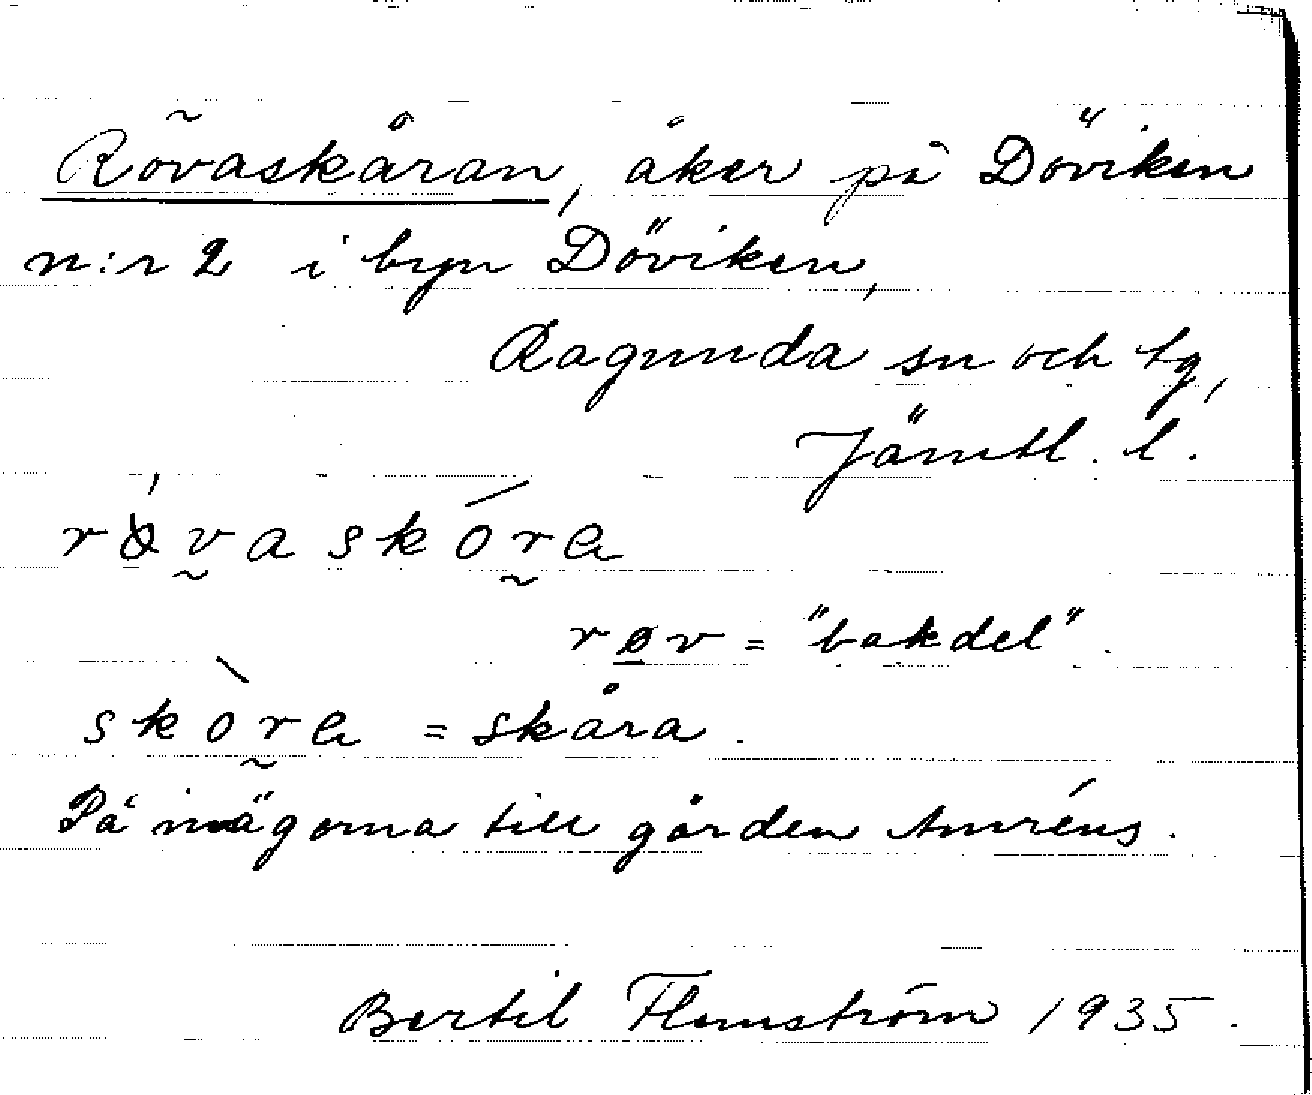 Rövaskåran, åker på Döviken
n:r 2 i byn Döviken,
Ragunda sn och tg,
Jämtl. l.
røvaskóra
røv = "bakdel"
skòra = skåra.
På inägorna till gården Amréns.
Bertil Flemström 1935.